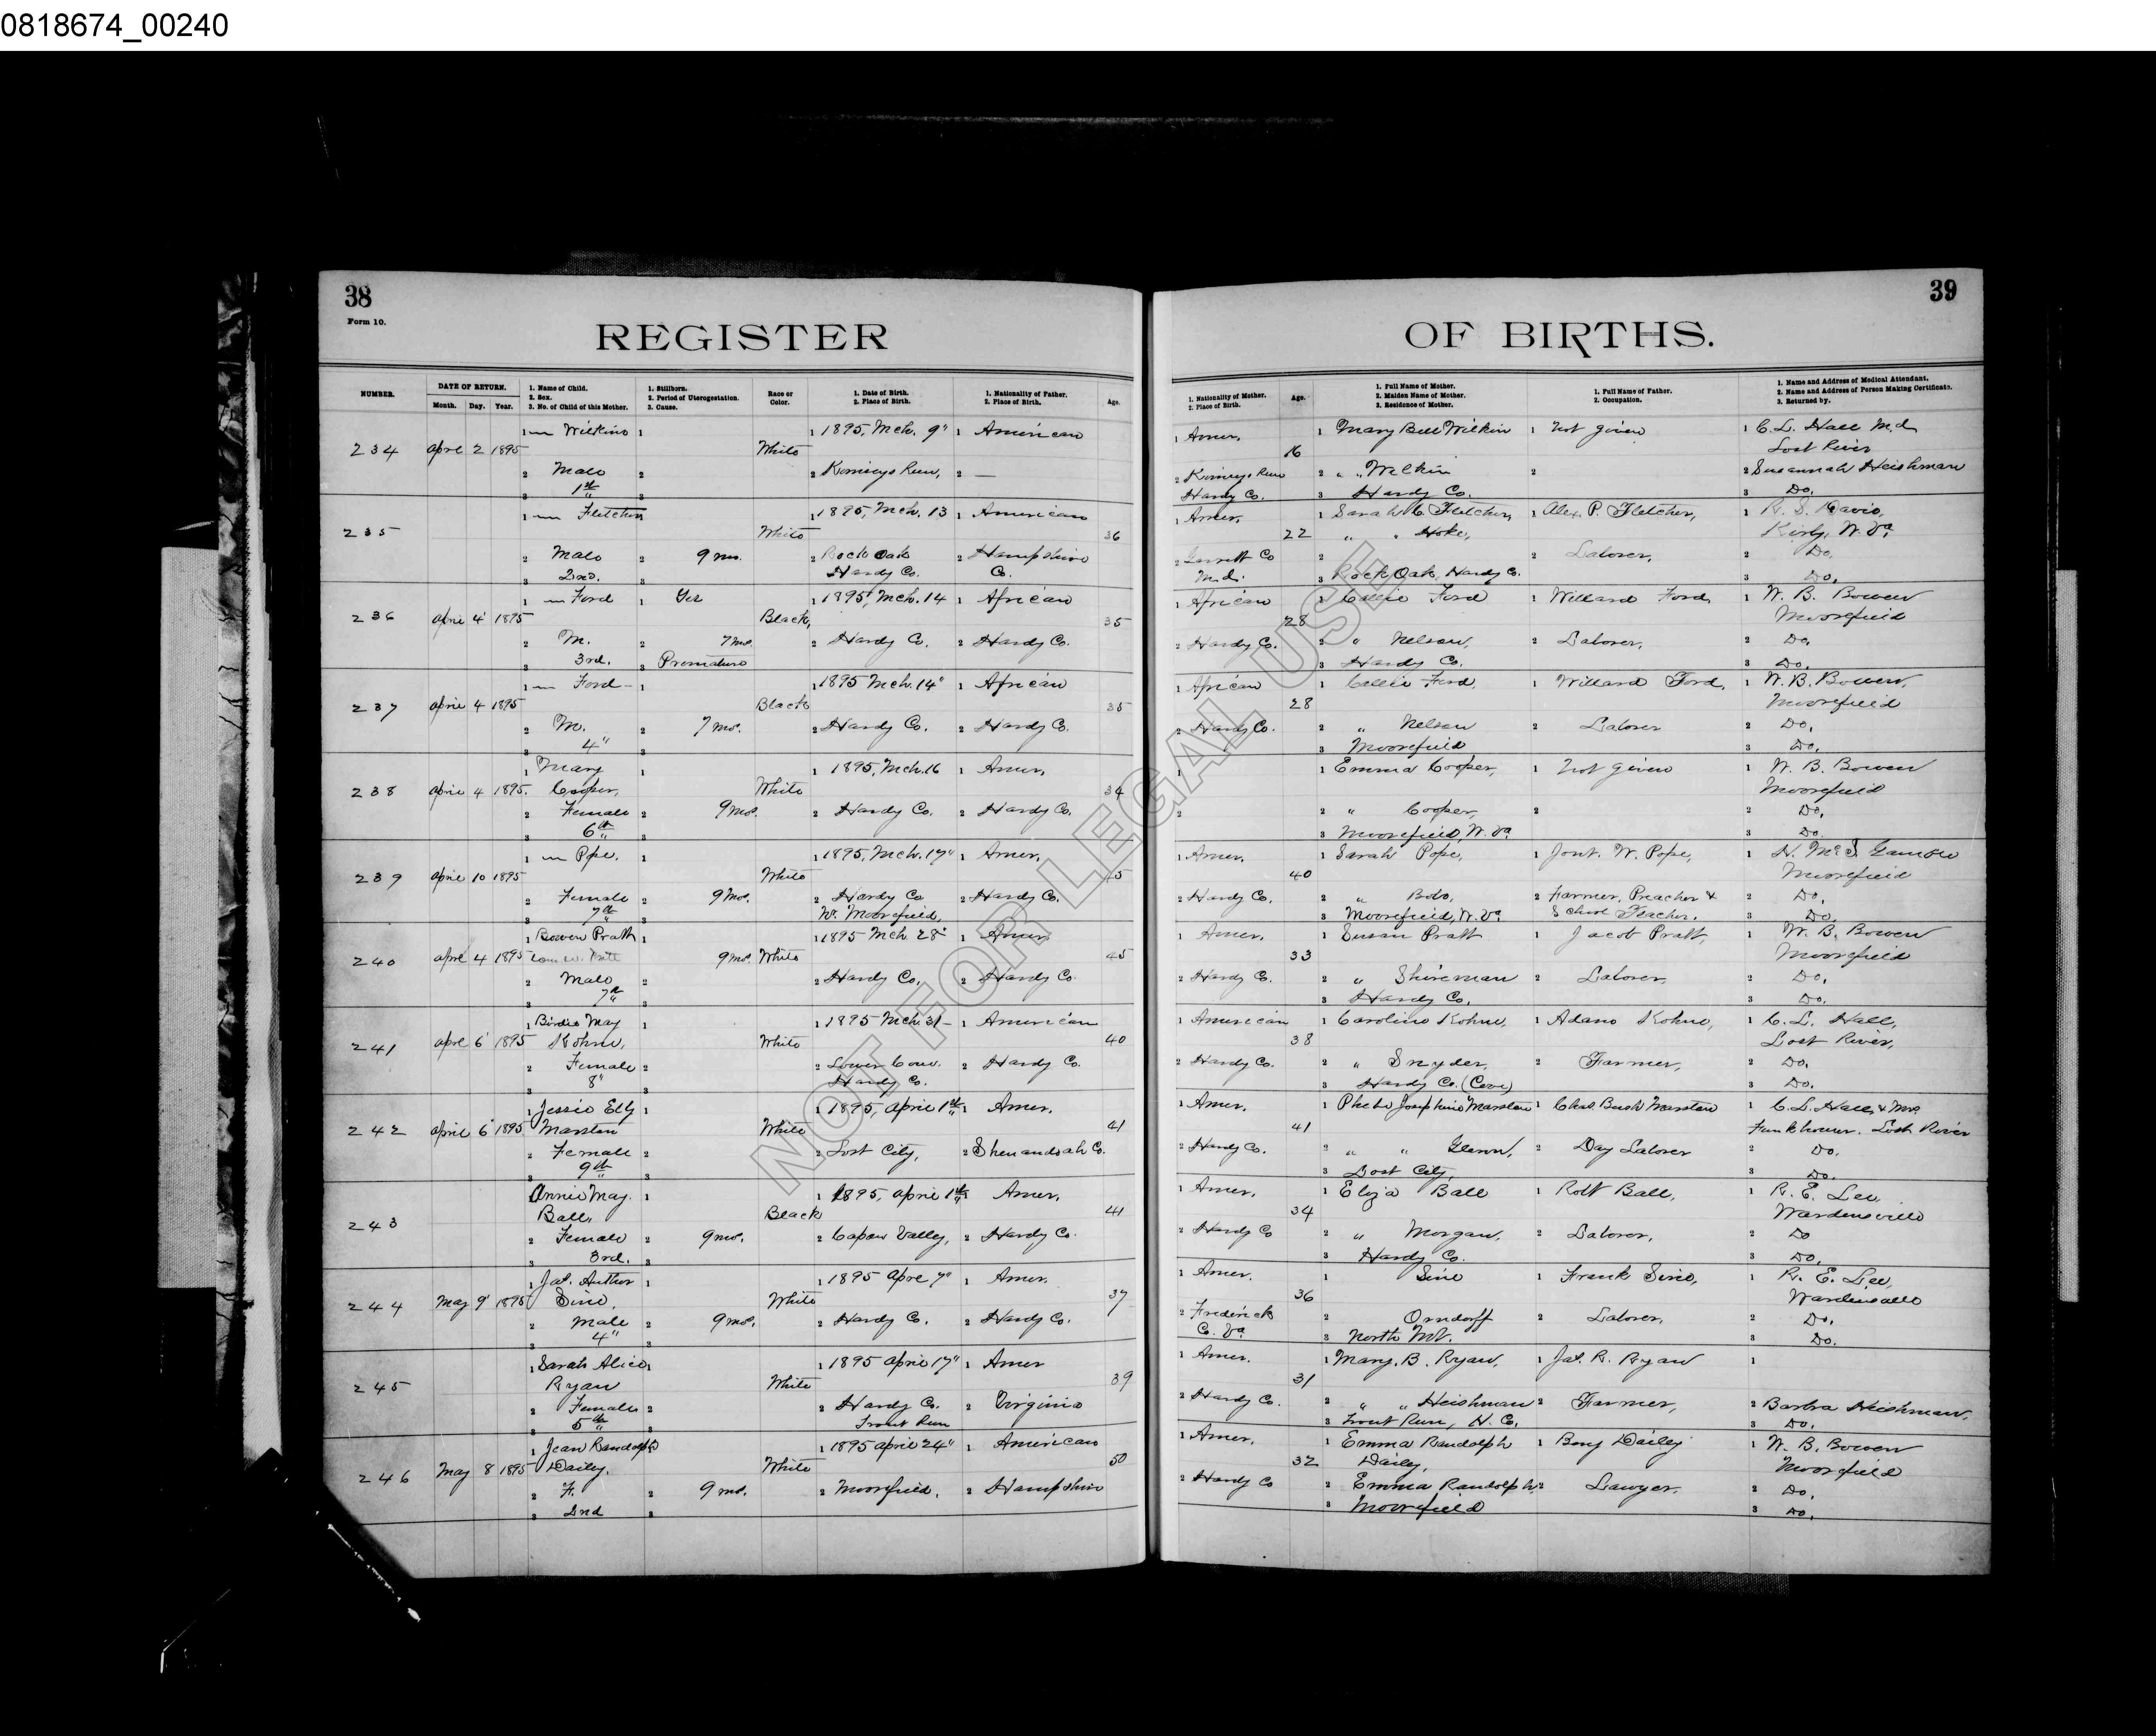 0818674_00240
38
Form 10.
REGISTER
NUMBER.
DATE OF RETURN.
Month. Day. Year.
1. Name of Child.
2. Sex.
3. No. of Child of this Mother.
1. Stillborn.
2. Period of Uterogestation.
3. Cause.
Race or Color.
1. Date of Birth.
2. Place of Birth.
1. Nationality of Father.
2. Place of Birth.
Age.
1 — Wilkins 1 1 1895, Mch. 9" 1 American
234 Apri 2 1895 White
2 Male 2 2 Kimseys Run, 2 —
3 1st 3
1 — Fletcher 1 1895, Mch. 13 1 American
235 White 36
2 Male 2 9 mo. 2 Rock Oak 2 Hampshire
3 2nd. 3 Hardy Co. Co.
1 — Ford 1 Yes 1 1895, Mch. 14 1 African
236 Apri 4' 1895 Black, 35
2 M. 2 7 Mos 2 Hardy Co. 2 Hardy Co.
3 3rd. 3 Premature
1 — Ford — 1 1 1895 Mch. 14" 1 African
237 April 4 1895 Black 35
2 M. 2 7 Mos. 2 Hardy Co. 2 Hardy Co.
3 4" 3
1 Mary 1 1 1895, Mch. 16 1 Amer.
238 April 4 1895. Cooper, White 34
2 Female 2 9 Mos. 2 Hardy Co. 2 Hardy Co.
3 6th 3
1 — Pope. 1 1 1895, Mch. 17" 1 Amer.
239 April 10 1895 White 45
2 Female 2 9 Mos. 2 Hardy Co 2 Hardy Co.
3 7th 3 Nr. Moorefield,
1 Bowen Pratt 1 1 1895 Mch. 28" 1 Amer
240 Apri 4 1895 9 Mos. White 45
2 Male 2 2 Hardy Co. 2 Hardy Co.
3 7th 3
1 Birdie May 1 1 1895 Mch. 31 — 1 American
241 Apri 6' 1895 Kohne, White 40
2 Female 2 2 Lower Cove. 2 Hardy Co.
3 8" 3 Hardy Co.
1 Jessie Etty 1 1 1895, April 1st 1 Amer.
242 April 6" 1895 Marston White 41
2 Female 2 2 Lost City, 2 Shenandoah Co.
3 9th 3
Annie May. 1 1 1895, April 1st 1 Amer.
243 Ball, Black 41
2 Female 2 9 mos. 2 Capon Valley, 2 Hardy Co.
3 3rd. 3
1 Jas. Author 1 1 1895 Apri 7" 1 Amer.
244 May 9' 1895 Sine, White 37
2 Male 2 9 mos. 2 Hardy Co. 2 Hardy Co.
3 4" 3
1 Sarah Alice 1 1 1895 April 17" 1 Amer
245 Ryan White 39
2 Female 2 2 Hardy Co. 2 Virginia
3 5th 3 Trout Run
1 Jean Randolph 1 1895 April 24" 1 American
246 May 8 1895 Dailey. White 50
2 F. 2 9 mos. 2 Moorefield. 2 Hampshire
3 2nd 3
39
OF BIRTHS.
1. Nationality of Mother.
2. Place of Birth.
Age.
1. Full Name of Mother.
2. Maiden Name of Mother.
3. Residence of Mother.
1. Full Name of Father.
2. Occupation.
1. Name and Address of Medical Attendant.
2. Name and Address of Person Making Certificate.
3. Returned by.
1 Amer. 1 Mary Bell Wilkin 1 Not given 1 C. L. Hall M.d.
16 Lost River
2 Kimseys Run 2 " " Wilkin 2 2 Susannah Heishman
Hardy Co. 3 Hardy Co. 3 Do.
1 Amer. 1 Sarah C. Fletcher, 1 Alex. P. Fletcher, 1 R. S. Davis,
22 " " Hoke, Kirby, W. Va.
2 Garrett Co 2 2 Laborer, 2 Do.
Md. 3 Rock Oak, Hardy Co. 3 Do.
1 African 1 Callie Ford 1 Willard Ford, 1 W. B. Bowen
28 Moorefield
2 Hardy Co. 2 " Nelson, 2 Laborer, 2 Do.
3 Hardy Co. 3 Do.
1 African 1 Callie Ford, 1 Willard Ford, 1 W. B. Bowen,
28 Moorefield
2 Hardy Co. 2 " Nelson 2 Laborer 2 Do.
3 Moorefield 3 Do.
1 1 Emma Cooper, 1 Not given 1 W. B. Bowen
Moorefield
2 2 " Cooper, 2 2 Do.
3 Moorefield, W. Va. 3 Do.
1 Amer. 1 Sarah Pope, 1 Jont. W. Pope, 1 H. McS. Gamble
40 Moorefield
2 Hardy Co. 2 " Bobo, 2 Farmer, Preacher & 2 Do.
3 Moorefield, W. Va. School Teacher. 3 Do.
1 Amer. 1 Susan Pratt 1 Jacob Pratt, 1 W. B. Bowen
33 Moorefield
2 Hardy Co. 2 " Shireman 2 Laborer, 2 Do.
3 Hardy Co. 3 Do.
1 American 1 Caroline Kohne, 1 Adam Kohne, 1 C. L. Hall,
38 Lost River,
2 Hardy Co. 2 " Snyder, 2 Farmer, 2 Do.
3 Hardy Co. (Cove) 3 Do.
1 Amer. 1 Phebe Josephine Marston 1 Chas. Bush Marston 1 C. L. Hall & Mrs.
41 Funkhouser. Lost River
2 Hardy Co. 2 " " Glenn, 2 Day Laborer 2 Do.
3 Lost City, 3 Do.
1 Amer. 1 Eliza Ball 1 Robt Ball, 1 R. E. Lee
34 Wardensville
2 Hardy Co 2 " Morgan, 2 Laborer, 2 Do
3 Hardy Co. 3 Do.
1 Amer. 1 Sine 1 Frank Sine, 1 R. E. Lee,
36 Wardensville
2 Frederick 2 Orndorff 2 Laborer, 2 Do.
Co. Va. 3 North Mt. 3 Do.
1 Amer. 1 Mary. B. Ryan, 1 Jas. R. Ryan 1
31
2 Hardy Co. 2 " " Heishman 2 Farmer, 2 Barbra Heishman.
3 Trout Run, H. C. 3 Do.
1 Amer. 1 Emma Randolph 1 Benj Dailey 1 W. B. Bowen
32 Dailey, Moorefield
2 Hardy Co 2 Emma Randolph 2 Lawyer. 2 Do.
3 Moorefield 3 Do.
NOT FOR LEGAL USE